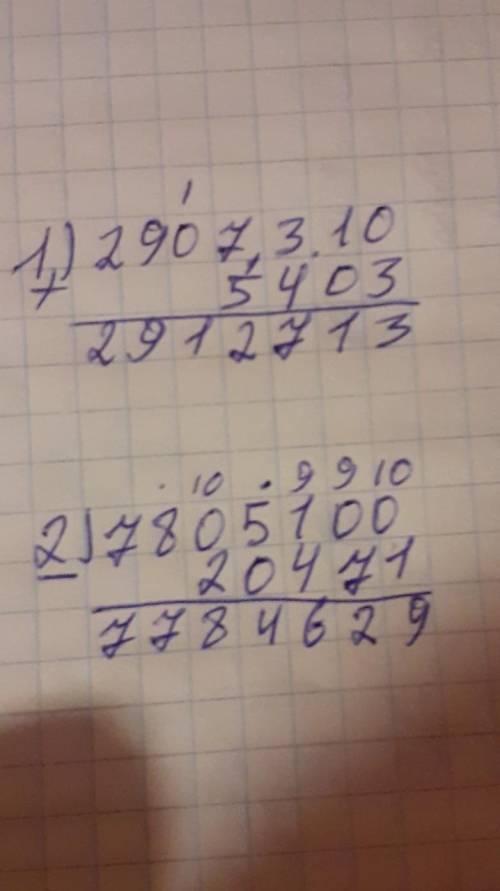 1
1) 2907.3.10
+ 5403
2912713
. 10 . 9 9 10
2) 7805100
- 20471
7784629